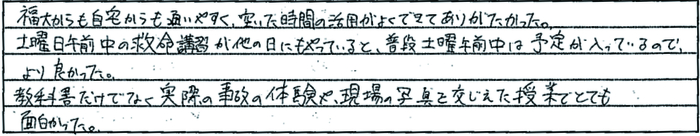 福大からも自宅からも通いやすく、空いた時間の活用がよくできてありがたかった。
土曜日午前中の救命講習が他の日にもやっていると、普段土曜午前中は予定が入っているので、
より良かった。
教科書だけでなく実際の事故の体験や、現場の写真を交じえた授業でとても
面白かった。